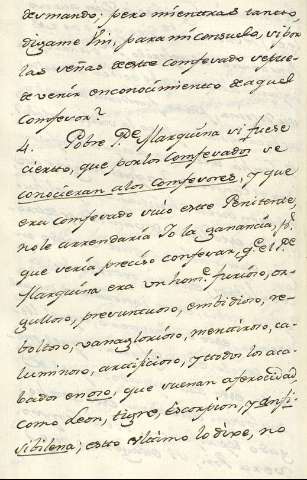 de mando; pero mientras tanto,
digame Vm, para mi consuelo, si por
las señas de este confesado se pue-
de venir en conocimiento de aquel
Confesor?
4. Pobre P.e Marquina si fuese
cierto, que por los confesados se
conocieran a los Confesores, y que
era confesado suio este Penitente,
no le arrendaría Yo la ganancia, p.r
que sería preciso confesar, q.e el P.e
Marquina era un hom.e furioso, or-
gulloso, presuntuoso, embidioso, re-
boltoso, vanaglorioso, mentiroso, ca-
luminoso, artificioso, y todos los aca-
bados en oso, que suenan a ferocidad
como Leon, tigre, Escorpion, y Anfi-
sibilena; esto ultimo lo dixe, no